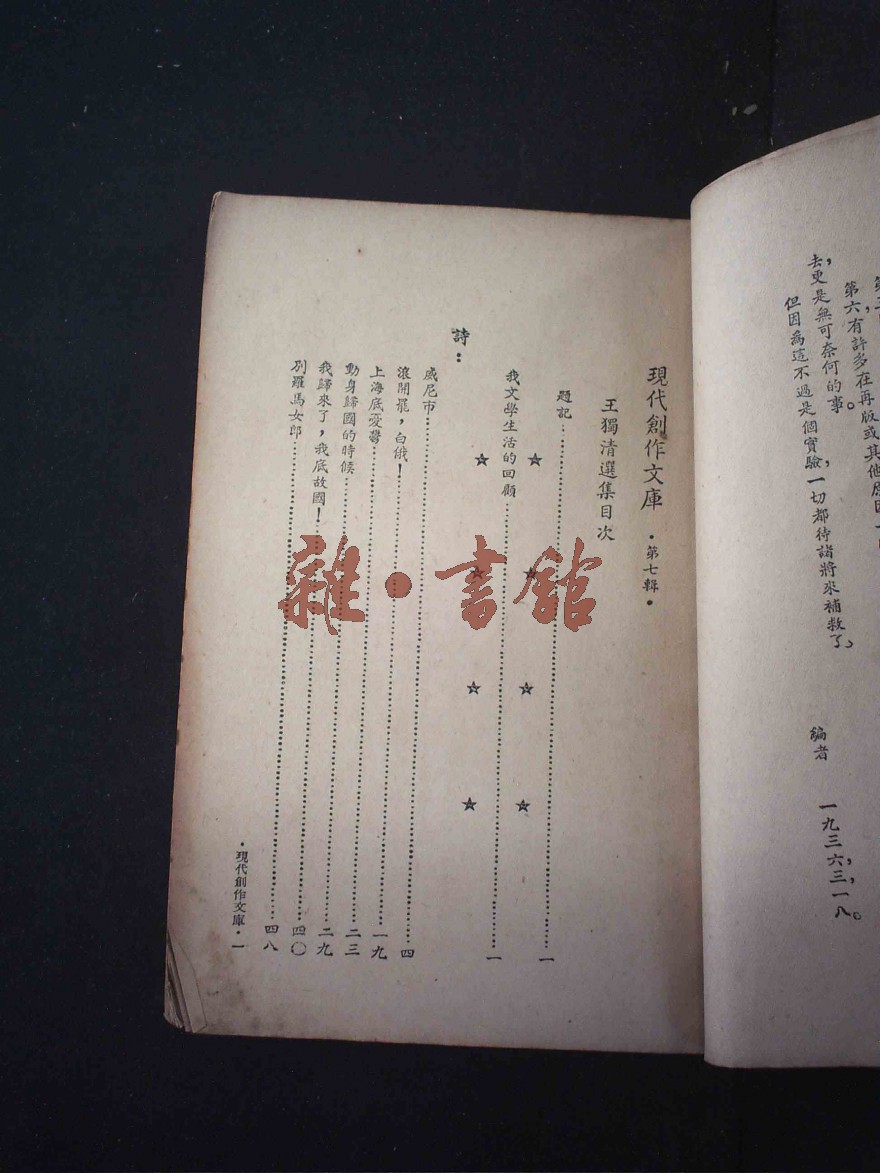 第六，有許多在再版或其他原因一
去，更是無可奈何的事。
但因為這不過是個實驗，一切都待諸將來補救了。
編者 一九三六，三，一八。
現代創作文庫 ·第七輯·
王獨清選集目次
題記……一
☆ ☆ ☆ ☆
我文學生活的回顧……一
☆ ☆ ☆ ☆
詩：
威尼市……四
滾開罷，白俄！……一九
上海底憂鬱……二三
動身歸國的時候……二九
我歸來了，我底故國！……四〇
別羅馬女郎……四八
·現代創作文庫·一
雜·書館